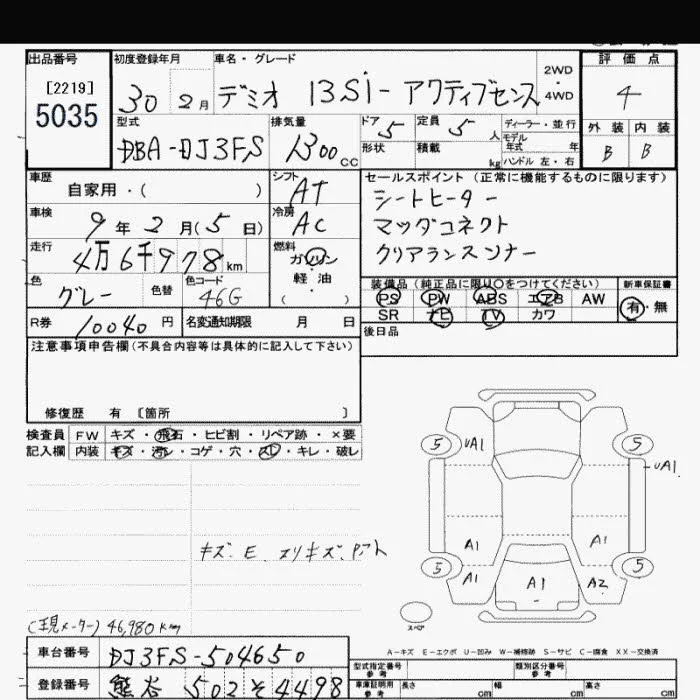 出品番号 初度登録年月 車名・グレード 2WD 4WD 評価点
[2219]
5035 30 2月 デミオ 13Si- アクティブセンス 4
型式 排気量 ドア 5 定員 5 人 ディーラー・並行 外装 内装
DBA-DJ3FS 1300 CC 形状 積載 kg モデル年式 年 ハンドル 左・右 B B
車歴 自家用・( ) シフト AT セールスポイント(正常に機能するものに限ります)
シートヒーター
車検 9年 2月(5日) 冷房 AC マツダコネクト
走行 4万6千978km 燃料 ガソリン クリアランスソナー
軽・油
( ・ )
色 グレー 色替 色コード 46G 装備品(純正品に限り○をつけてください) 新車保証書
PS PW ABS エアB AW 有・無
SR ナビ TV カワ
R券 10040円 名変通知期限 月 日 後日品
注意事項申告欄(不具合内容等は具体的に記入して下さい)
修復歴 有 〔箇所 〕
検査員 FW キズ・飛石・ヒビ割・リペア跡・×要
記入欄 内装 キズ・汚レ・コゲ・穴・スレ・キレ・破レ
キズ、E、スリキズ、Pアト
5 UA1 5
UA1
A1 A1
5 5
A1 A1 A2
スペア
(現メーター) 46,980km
A-キズ E-エクボ U-凹み W-補修跡 S-サビ C-腐食 XX-交換済
車台番号 DJ3FS-504650 型式指定番号 参考 類別区分番号 参考
登録番号 熊谷 502 そ 4498 車庫証明用 参考 長さ cm 幅 cm 高さ cm